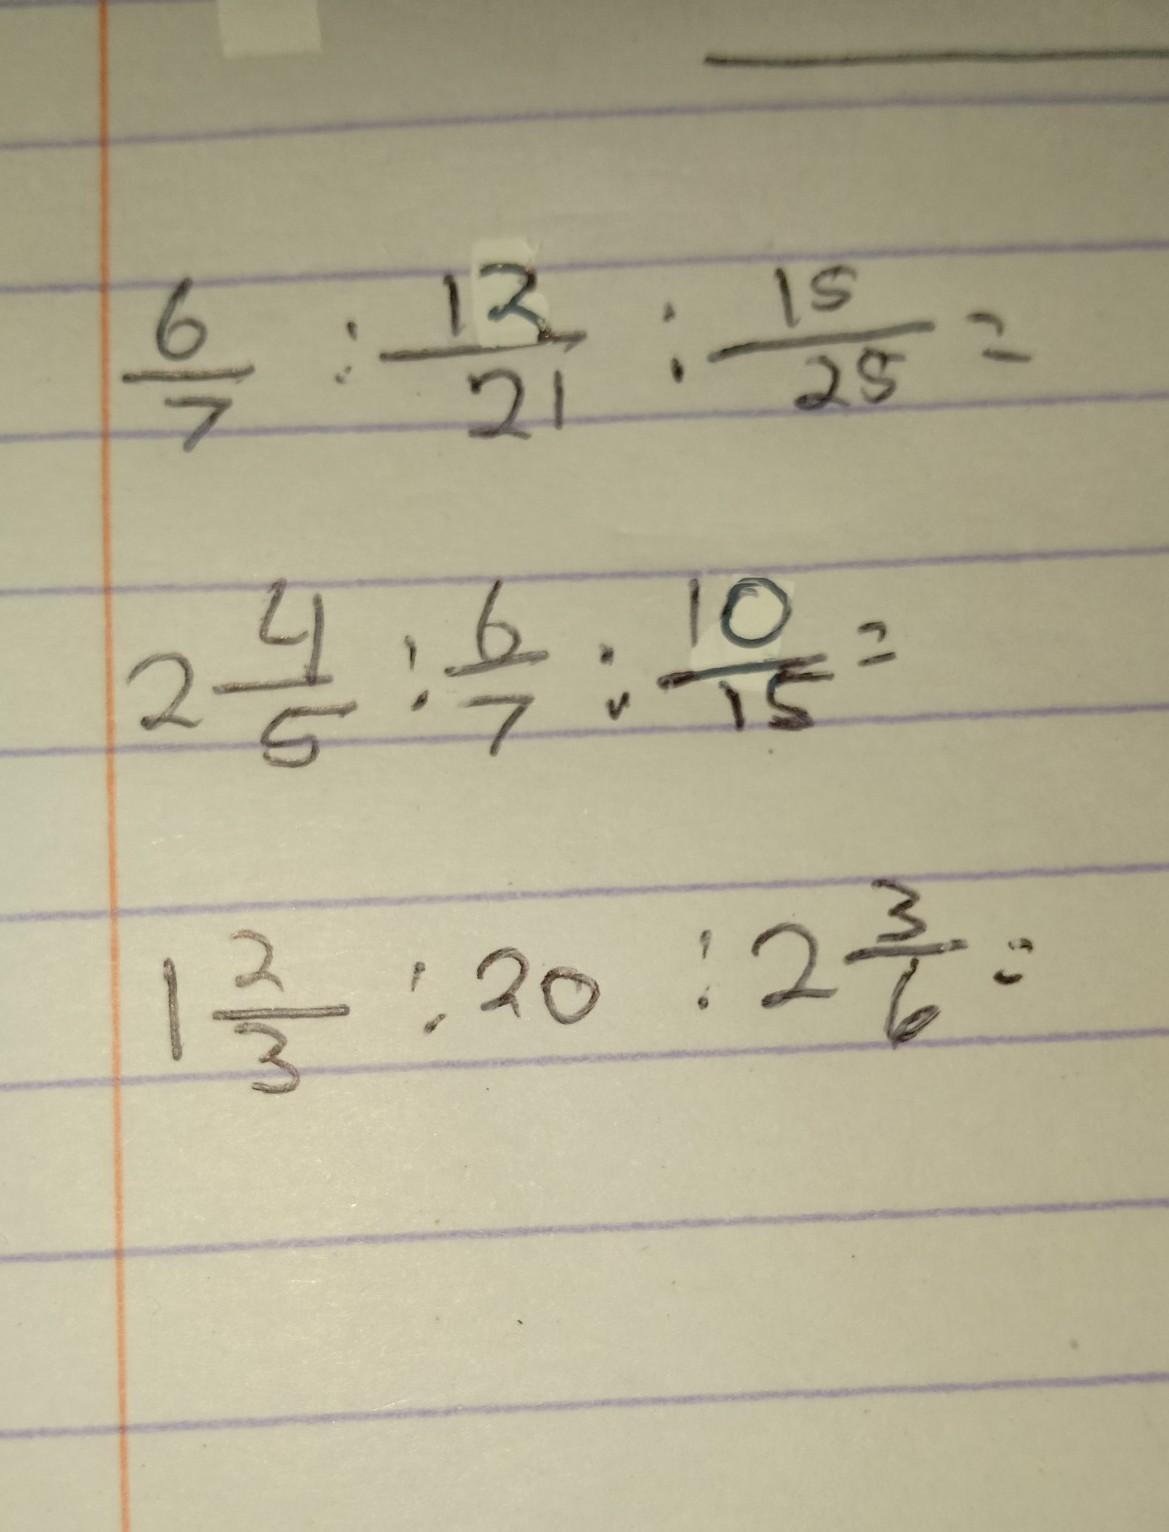 6/7 : 12/21 : 15/25 =
2 4/5 : 6/7 : 10/15 =
1 2/3 : 20 : 2 3/6 =